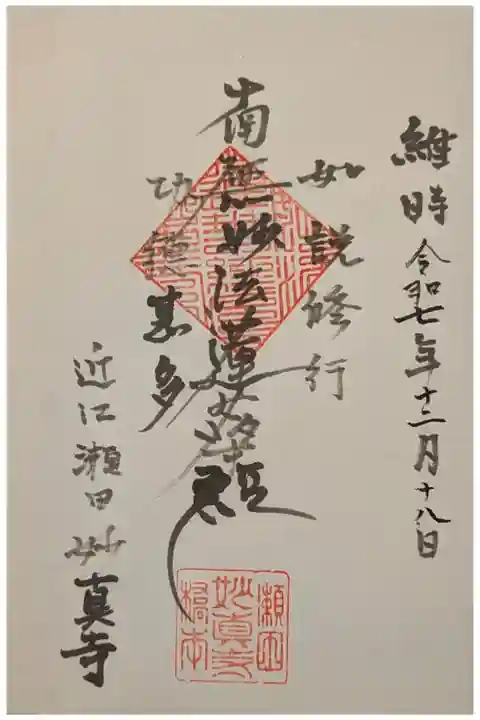 維時 令和七年十二月十八日
如説修行
南無妙法蓮華経
功徳甚多
近江瀬田妙真寺
瀬田
妙眞寺
橋本